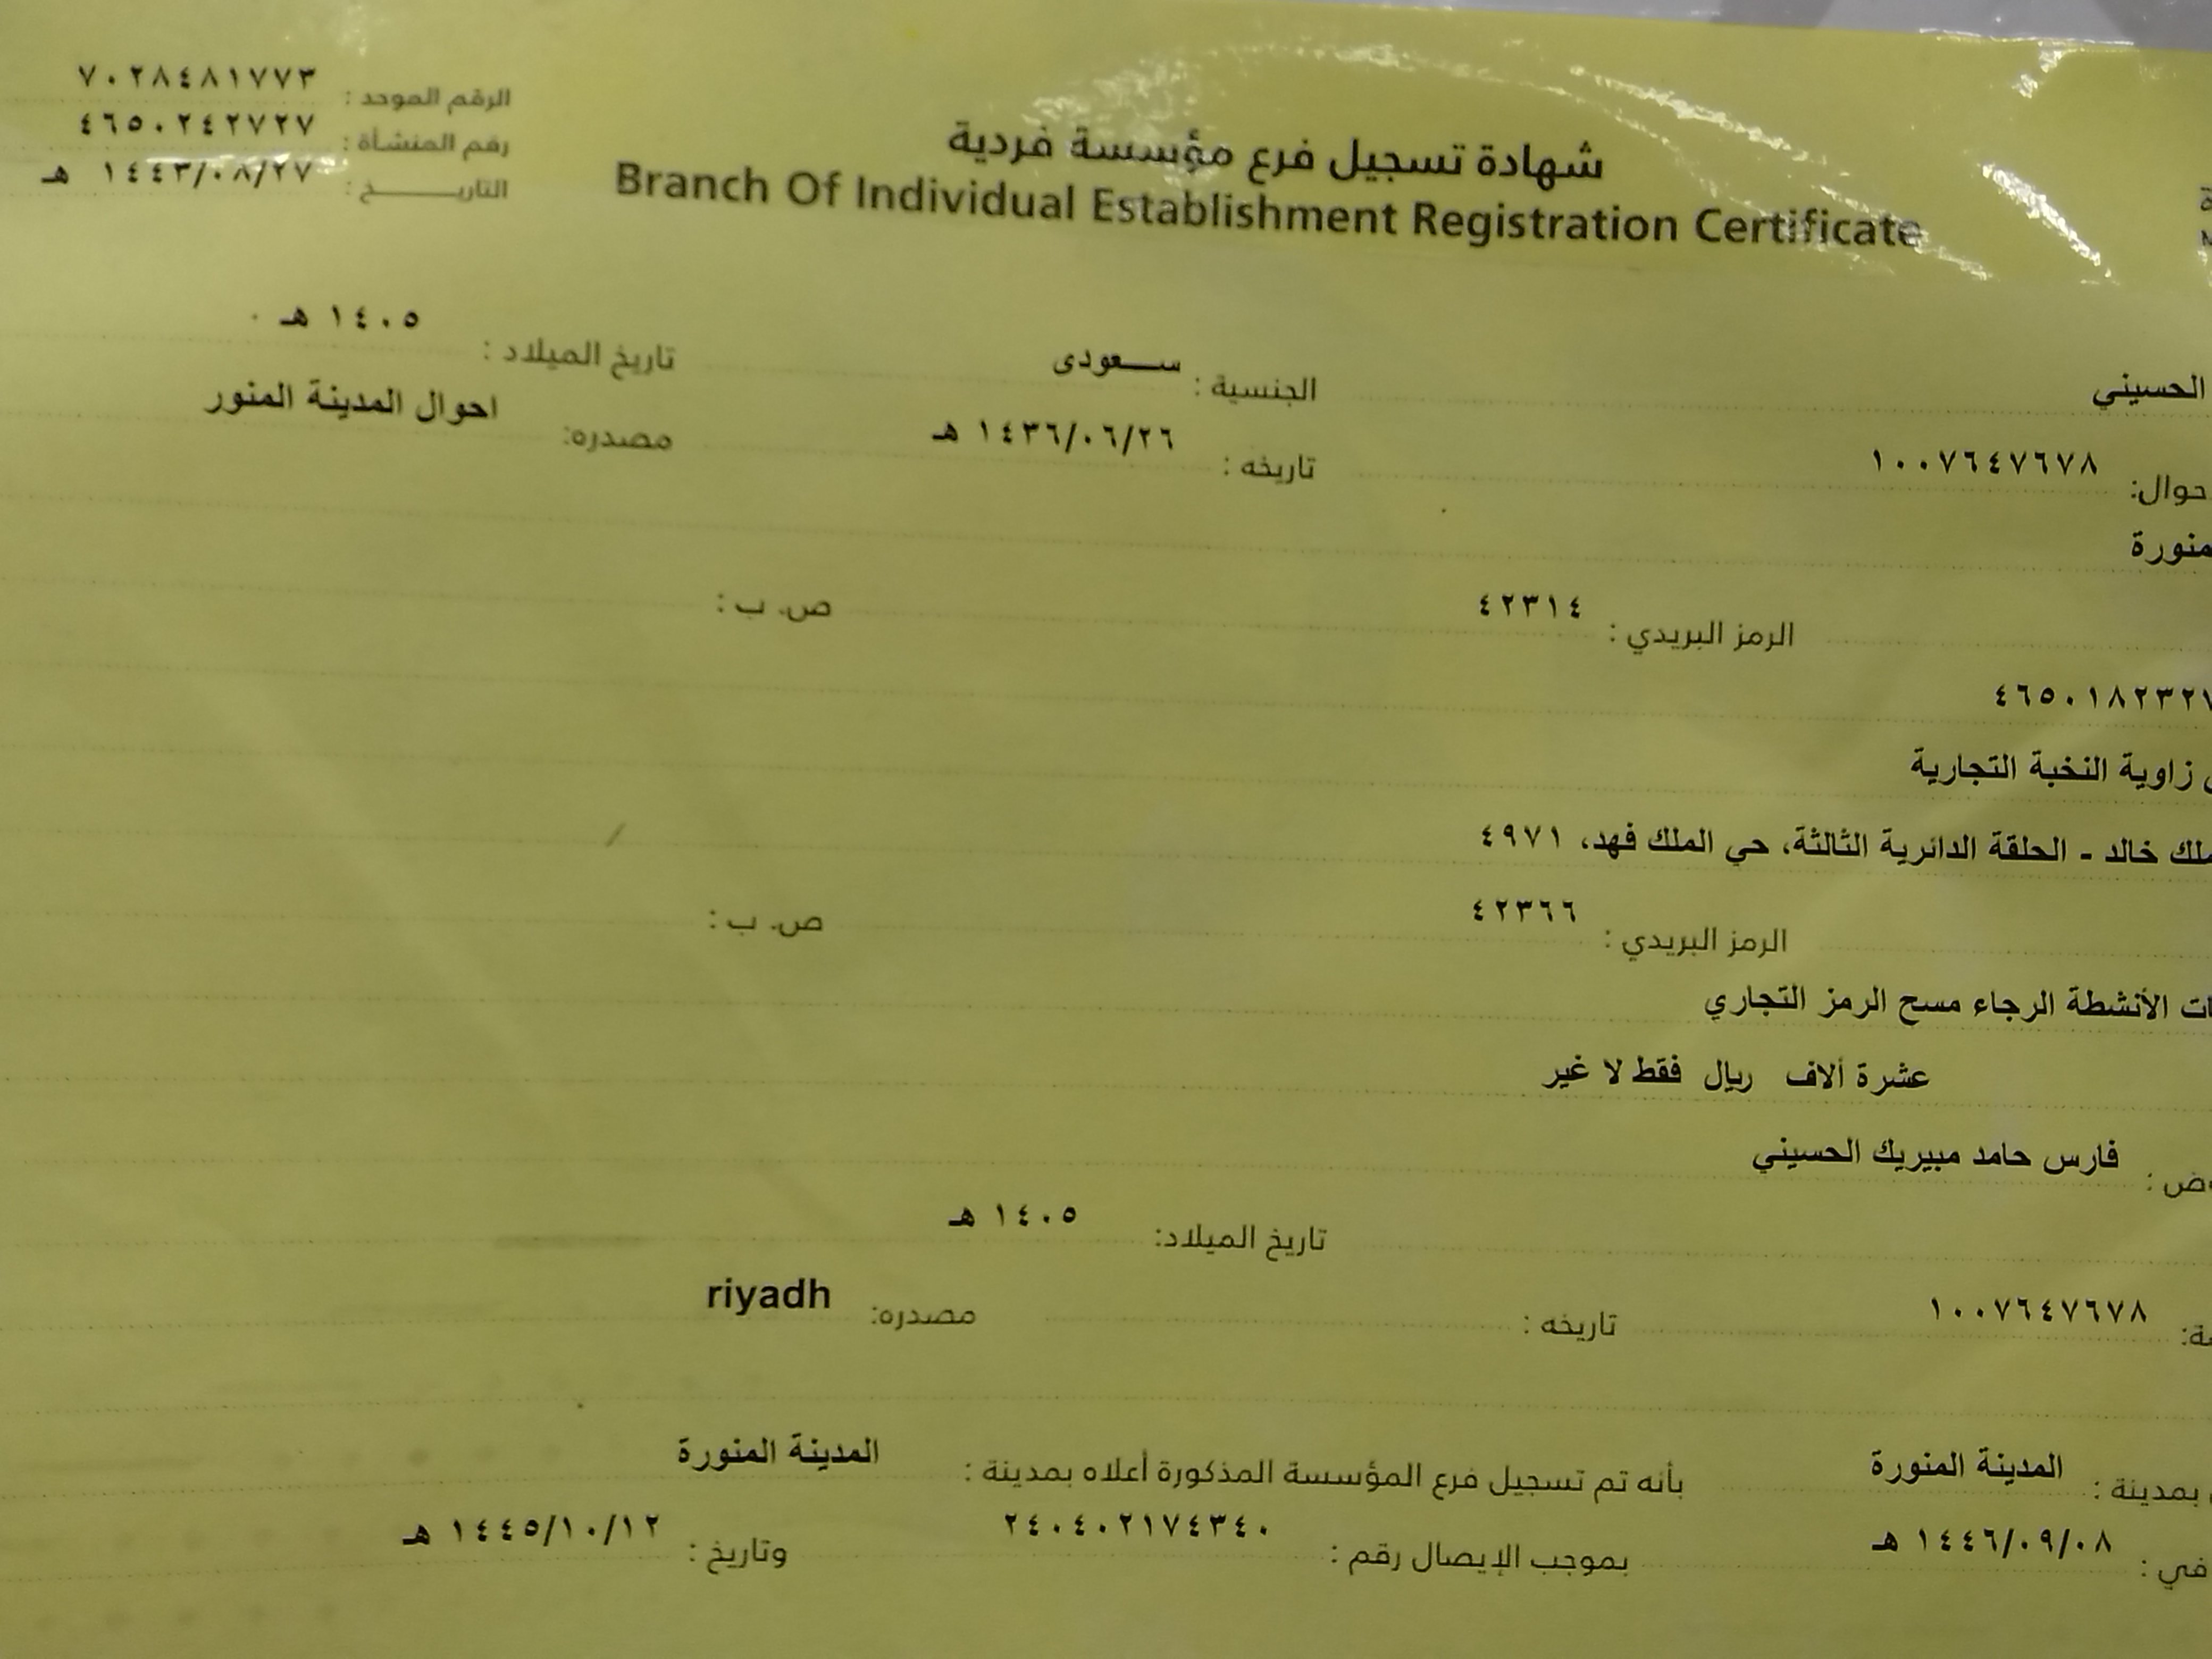 الرقم الموحد : ٧٠٢٨٤٨١٧٧٣
رقم المنشأة : ٤٦٥٠٢٤٢٧٢٧
التاريـــــــخ : ١٤٤٣/٠٨/٢٧ هـ
شهادة تسجيل فرع مؤسسة فردية
Branch Of Individual Establishment Registration Certificate
الحسيني الجنسية : ســـعودى تاريخ الميلاد : ١٤٠٥ هـ
حوال: ١٠٠٧٦٤٧٦٧٨ تاريخه : ١٤٣٦/٠٦/٢٦ هـ مصدره: احوال المدينة المنور
منورة
الرمز البريدي : ٤٢٣١٤ ص. ب :
٤٦٥٠١٨٢٣٢٧
زاوية النخبة التجارية
ملك خالد - الحلقة الدائرية الثالثة، حي الملك فهد، ٤٩٧١
الرمز البريدي : ٤٢٣٦٦ ص. ب :
ات الأنشطة الرجاء مسح الرمز التجاري
عشرة ألاف ريال فقط لا غير
وض : فارس حامد مبيريك الحسيني
تاريخ الميلاد: ١٤٠٥ هـ
ة: ١٠٠٧٦٤٧٦٧٨ تاريخه : مصدره: riyadh
بمدينة : المدينة المنورة بأنه تم تسجيل فرع المؤسسة المذكورة أعلاه بمدينة : المدينة المنورة
في : ١٤٤٦/٠٩/٠٨ هـ بموجب الإيصال رقم : ٢٤٠٤٠٢١٧٤٣٤٠ وتاريخ : ١٤٤٥/١٠/١٢ هـ